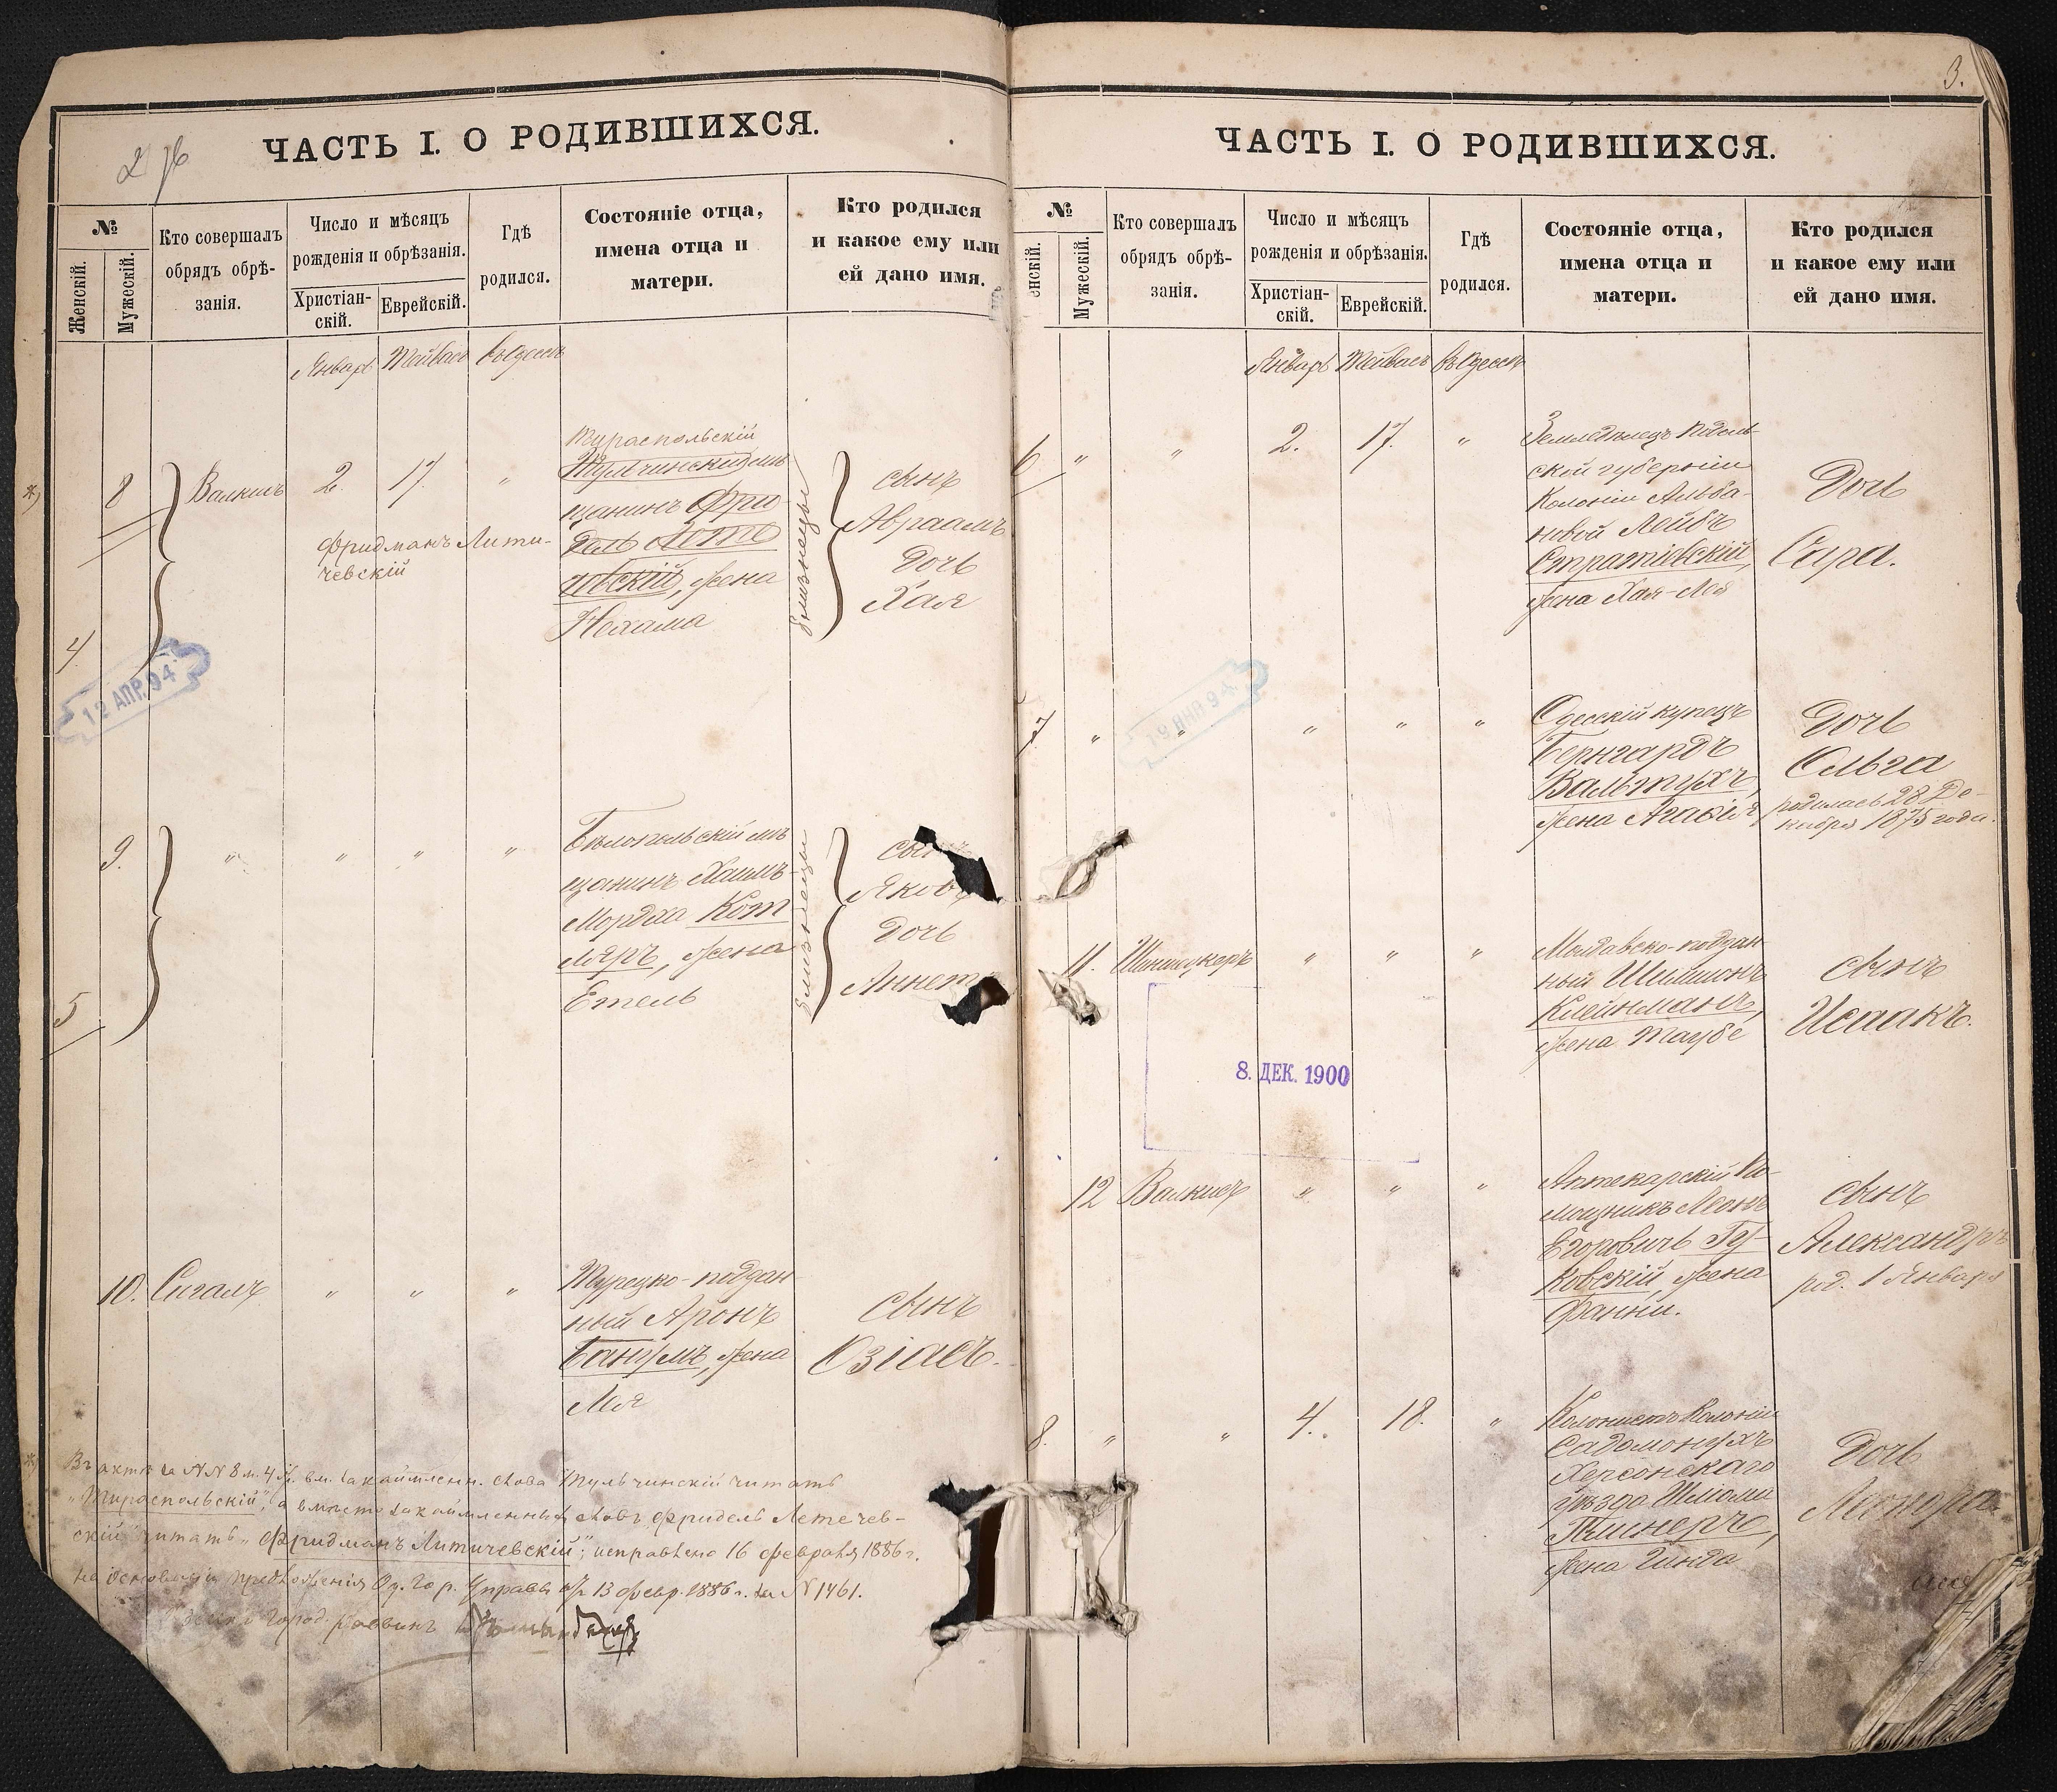 ЧАСТЬ I. О РОДИВШИХСЯ.
№
Женскій.
Мужескій.
Кто совершалъ
обрядъ обрѣ-
занія.
Число и мѣсяцъ
рожденія и обрѣзанія.
Христіан-
скій.
Еврейскій.
Гдѣ
родился.
Состояніе отца,
имена отца и
матери.
Кто родился
и какое ему или
ей дано имя.
Январь Тейвасъ въ Одессѣ
8 Валкисъ 2. 17. "
4
Тираспольскій
Тульчинскій мѣ-
щанинъ Фри-
дель Лете
чевскій, жена
Нехама
Фридманъ Лити-
чевскій
близнецы
сынъ
Авраамъ
Дочь
Хая
12 АПР. 94
9. " " " "
5
Бѣлопольскій мѣ-
щанинъ Хаимъ-
Мордха Кот
ляръ, жена
Етель
близнецы
сынъ
Яковъ
Дочь
Аннета
10. Сигалъ " " "
Турецко-поддан-
ный Аронъ
Банумъ, жена
Лея
сынъ
Озіасъ.
Въ актѣ за NN 8 м. 4 ж. вм. закаймленн. слова Тульчинскій читать
"Тираспольскій", а вмѣсто закаймленныхъ словъ Фридель Летечев-
скій читать "Фридманъ Литичевскій"; исправлено 16 февраля 1886 г.
на основаніи предложенія Од. Гор. Управы отъ 13 февр. 1886 г. за N 1461.
Город. раввинъ
3.
ЧАСТЬ I. О РОДИВШИХСЯ.
№
енскій.
Мужескій.
Кто совершалъ
обрядъ обрѣ-
занія.
Число и мѣсяцъ
рожденія и обрѣзанія.
Христіан-
скій.
Еврейскій.
Гдѣ
родился.
Состояніе отца,
имена отца и
матери.
Кто родился
и какое ему или
ей дано имя.
Январь Тейвасъ въ Одессѣ
6 " " 2. 17. "
Земледѣлецъ Подоль-
ской губерніи
Колоніи Альба-
новой Лейбъ
Стратіевскій,
жена Хая-Лея
Дочь
Сара.
7 " " " " "
Одесскій купецъ
Бернгардъ
Вальтухъ,
жена
Дочь
Ольга
родилась 28 Де-
кабря 1875 года.
11. " " "
Молдавско-поддан
ный Шимшонъ
Клейнманъ,
жена Таубе
сынъ
Исаакъ.
8. ДЕК. 1900
12 Валкисъ " " "
Аптекарскій По-
мощникъ Леонъ
Егоровичъ Гу-
ковскій, жена
Фанни.
сынъ
Александръ
род. 1 Января
8. " " 4. 18. "
Колонистъ Колоніи
Херсонскаго
уѣзда Шлома
Пинеръ,
жена Гинда
Дочь
Леонора